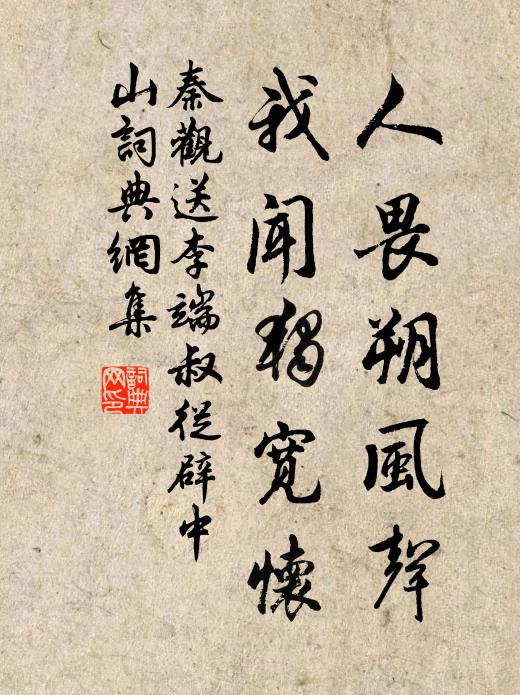 人畏朔風聲
我聞獨寬懷
秦觀送李端叔從辟中
山詞典網集
詞典
网印